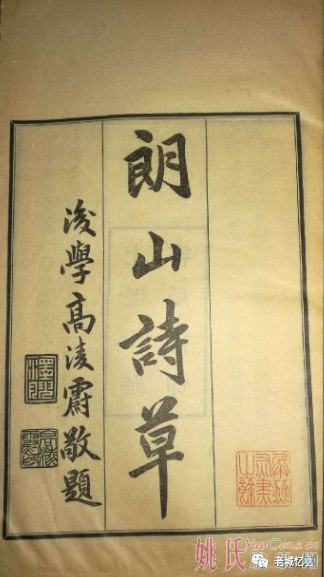 朗山詩草
後學高凌霨敬題
姚氏YaoGene.cn
老城忆